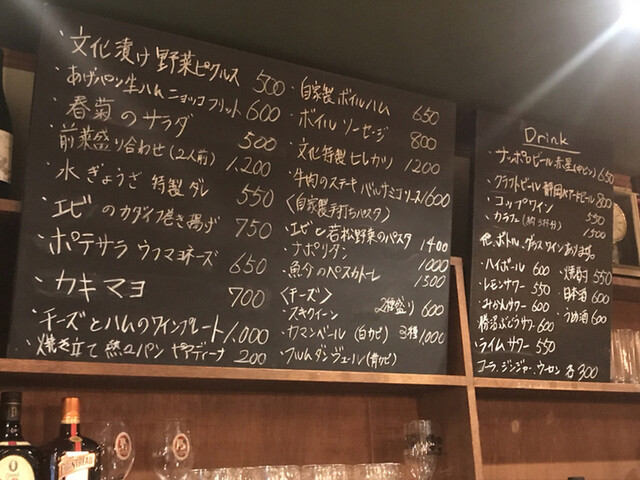 ・文化漬け 野菜ピクルス 500
・あげパン生ハム ニョッコフリット 600
・春菊のサラダ 500
・前菜盛り合わせ(2人前) 1,200
・水ぎょうざ 特製ダレ 550
・エビのカダイフ巻き揚げ 750
・ポテサラ ウフマヨネーズ 650
・カキマヨ 700
・チーズとハムのワインプレート 1,000
・焼き立て パン ピアディーナ 200
・自家製ボイルハム 650
・ボイルソーセージ 800
・文化特製ヒレカツ 1200
・牛肉のステーキ バルサミコソース 1600
〈自家製手打ちパスタ〉
・エビと若松野菜のパスタ 1400
・ナポリタン 1000
・魚介のペスカトーレ 1300
〈チーズ〉
・スクイーン 2種盛り 600
・カマンベール (白カビ) 3種 1,000
・フルムダンヴェール(青カビ)
Drink
・サッポロビール赤星(中ビン) 650
・クラフトビール 静岡 800
・コップワイン 550
・カラフェ(約3杯分) 1500
他、ボトル、グラスワインあります。
・ハイボール 600
・レモンサワー 550
・みかんサワー 600
・勝沼ぶどうサワー 600
・ライムサワー 550
・焼酎 550
・日本酒 600
・うめ酒 600
コーラ、ジンジャー、ウーロン 各300
COINTREAU